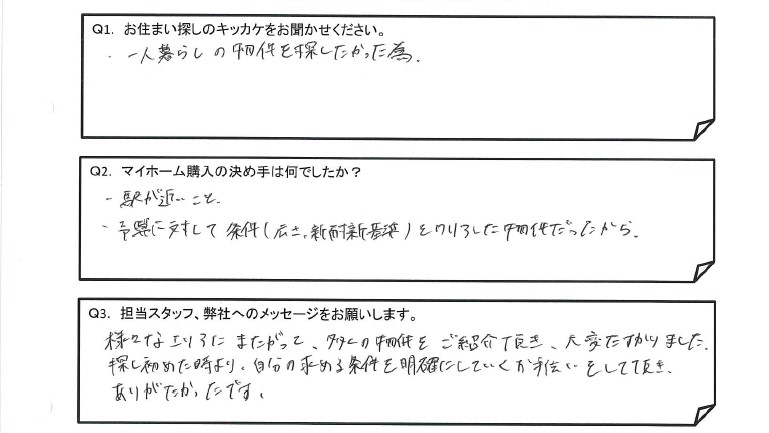 Q1. お住まい探しのキッカケをお聞かせください。
・一人暮らしの物件を探したかった為.
Q2. マイホーム購入の決め手は何でしたか？
・駅が近いこと.
・予算に対して条件(広さ,新耐震基準)をクリアした物件だったから.
Q3. 担当スタッフ、弊社へのメッセージをお願いします。
様々なエリアにまたがって、多くの物件をご紹介頂き、大変たすかりました.
探し初めた時より、自分の求める条件を明確にしていくお手伝いをして頂き.
ありがたかったです。